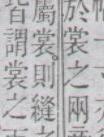 於裳之兩
屬裳則縫
皆謂裳之